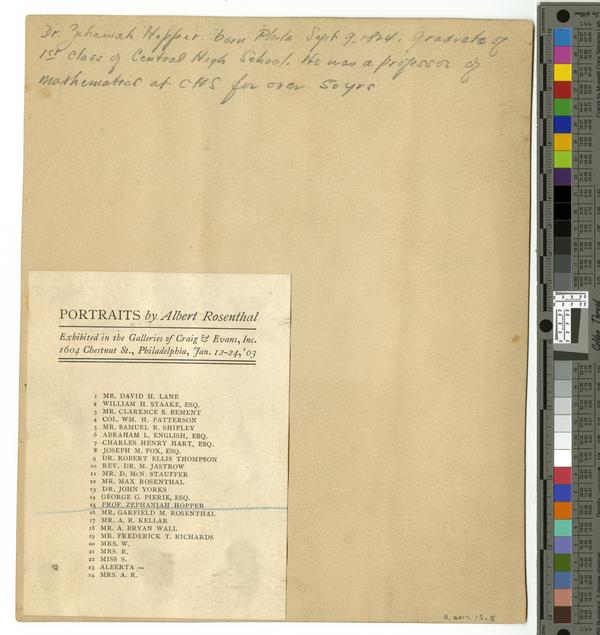 Dr. Zephaniah Hopper born Phila Sept 9, 1824. Graduate of
1st Class of Central High School. He was a professor of
mathematics at CHS for over 50 yrs
PORTRAITS by Albert Rosenthal
Exhibited in the Galleries of Craig & Evans, Inc.
1604 Chestnut St., Philadelphia, Jan. 12-24, '03
1 MR. DAVID H. LANE
2 WILLIAM H. STAAKE, ESQ.
3 MR. CLARENCE S. BEMENT
4 COL. WM. H. PATTERSON
5 MR. SAMUEL R. SHIPLEY
6 ABRAHAM L. ENGLISH, ESQ.
7 CHARLES HENRY HART, ESQ.
8 JOSEPH M. FOX, ESQ.
9 DR. ROBERT ELLIS THOMPSON
10 REV. DR. M. JASTROW
11 MR. D. McN. STAUFFER
12 MR. MAX ROSENTHAL
13 DR. JOHN YORKS
14 GEORGE G. PIERIE, ESQ.
15 PROF. ZEPHANIAH HOPPER
16 MR. GARFIELD M. ROSENTHAL
17 MR. A. R. KELLAR
18 MR. A. BRYAN WALL
19 MR. FREDERICK T. RICHARDS
20 MRS. W.
21 MRS. R.
22 MISS S.
23 ALBERTA —
24 MRS. A. R.
Golden Thread